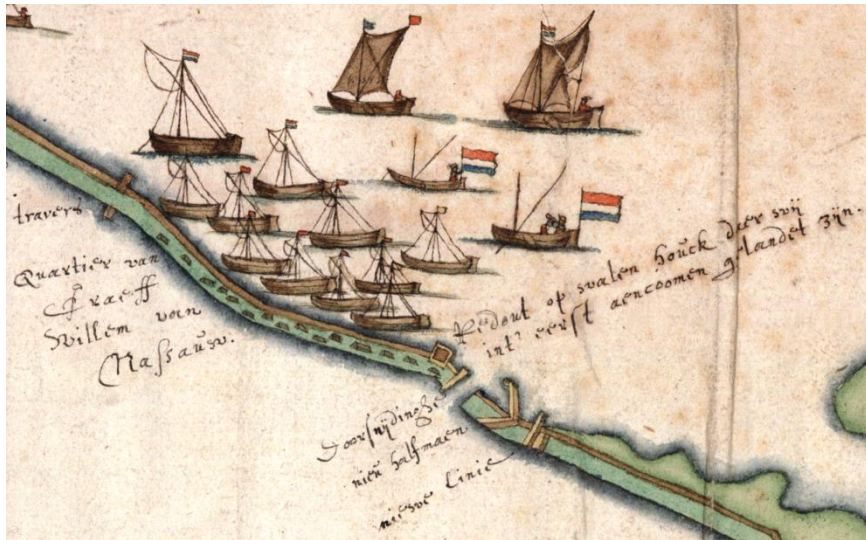 travers
Quartier van
Graeff
Willem van
Nassauw.
Redout op swalen houck daer wij
int' eerst aencoomen gelandet zijn.
Doorsnijdinghe
nieu halfmaen
nieuwe Linie